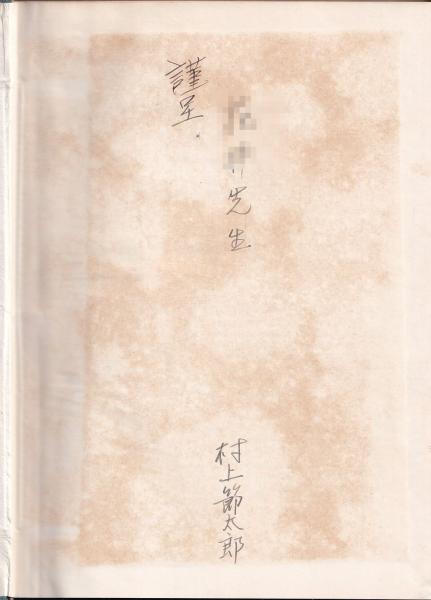 謹呈.
先生
村上節太郎